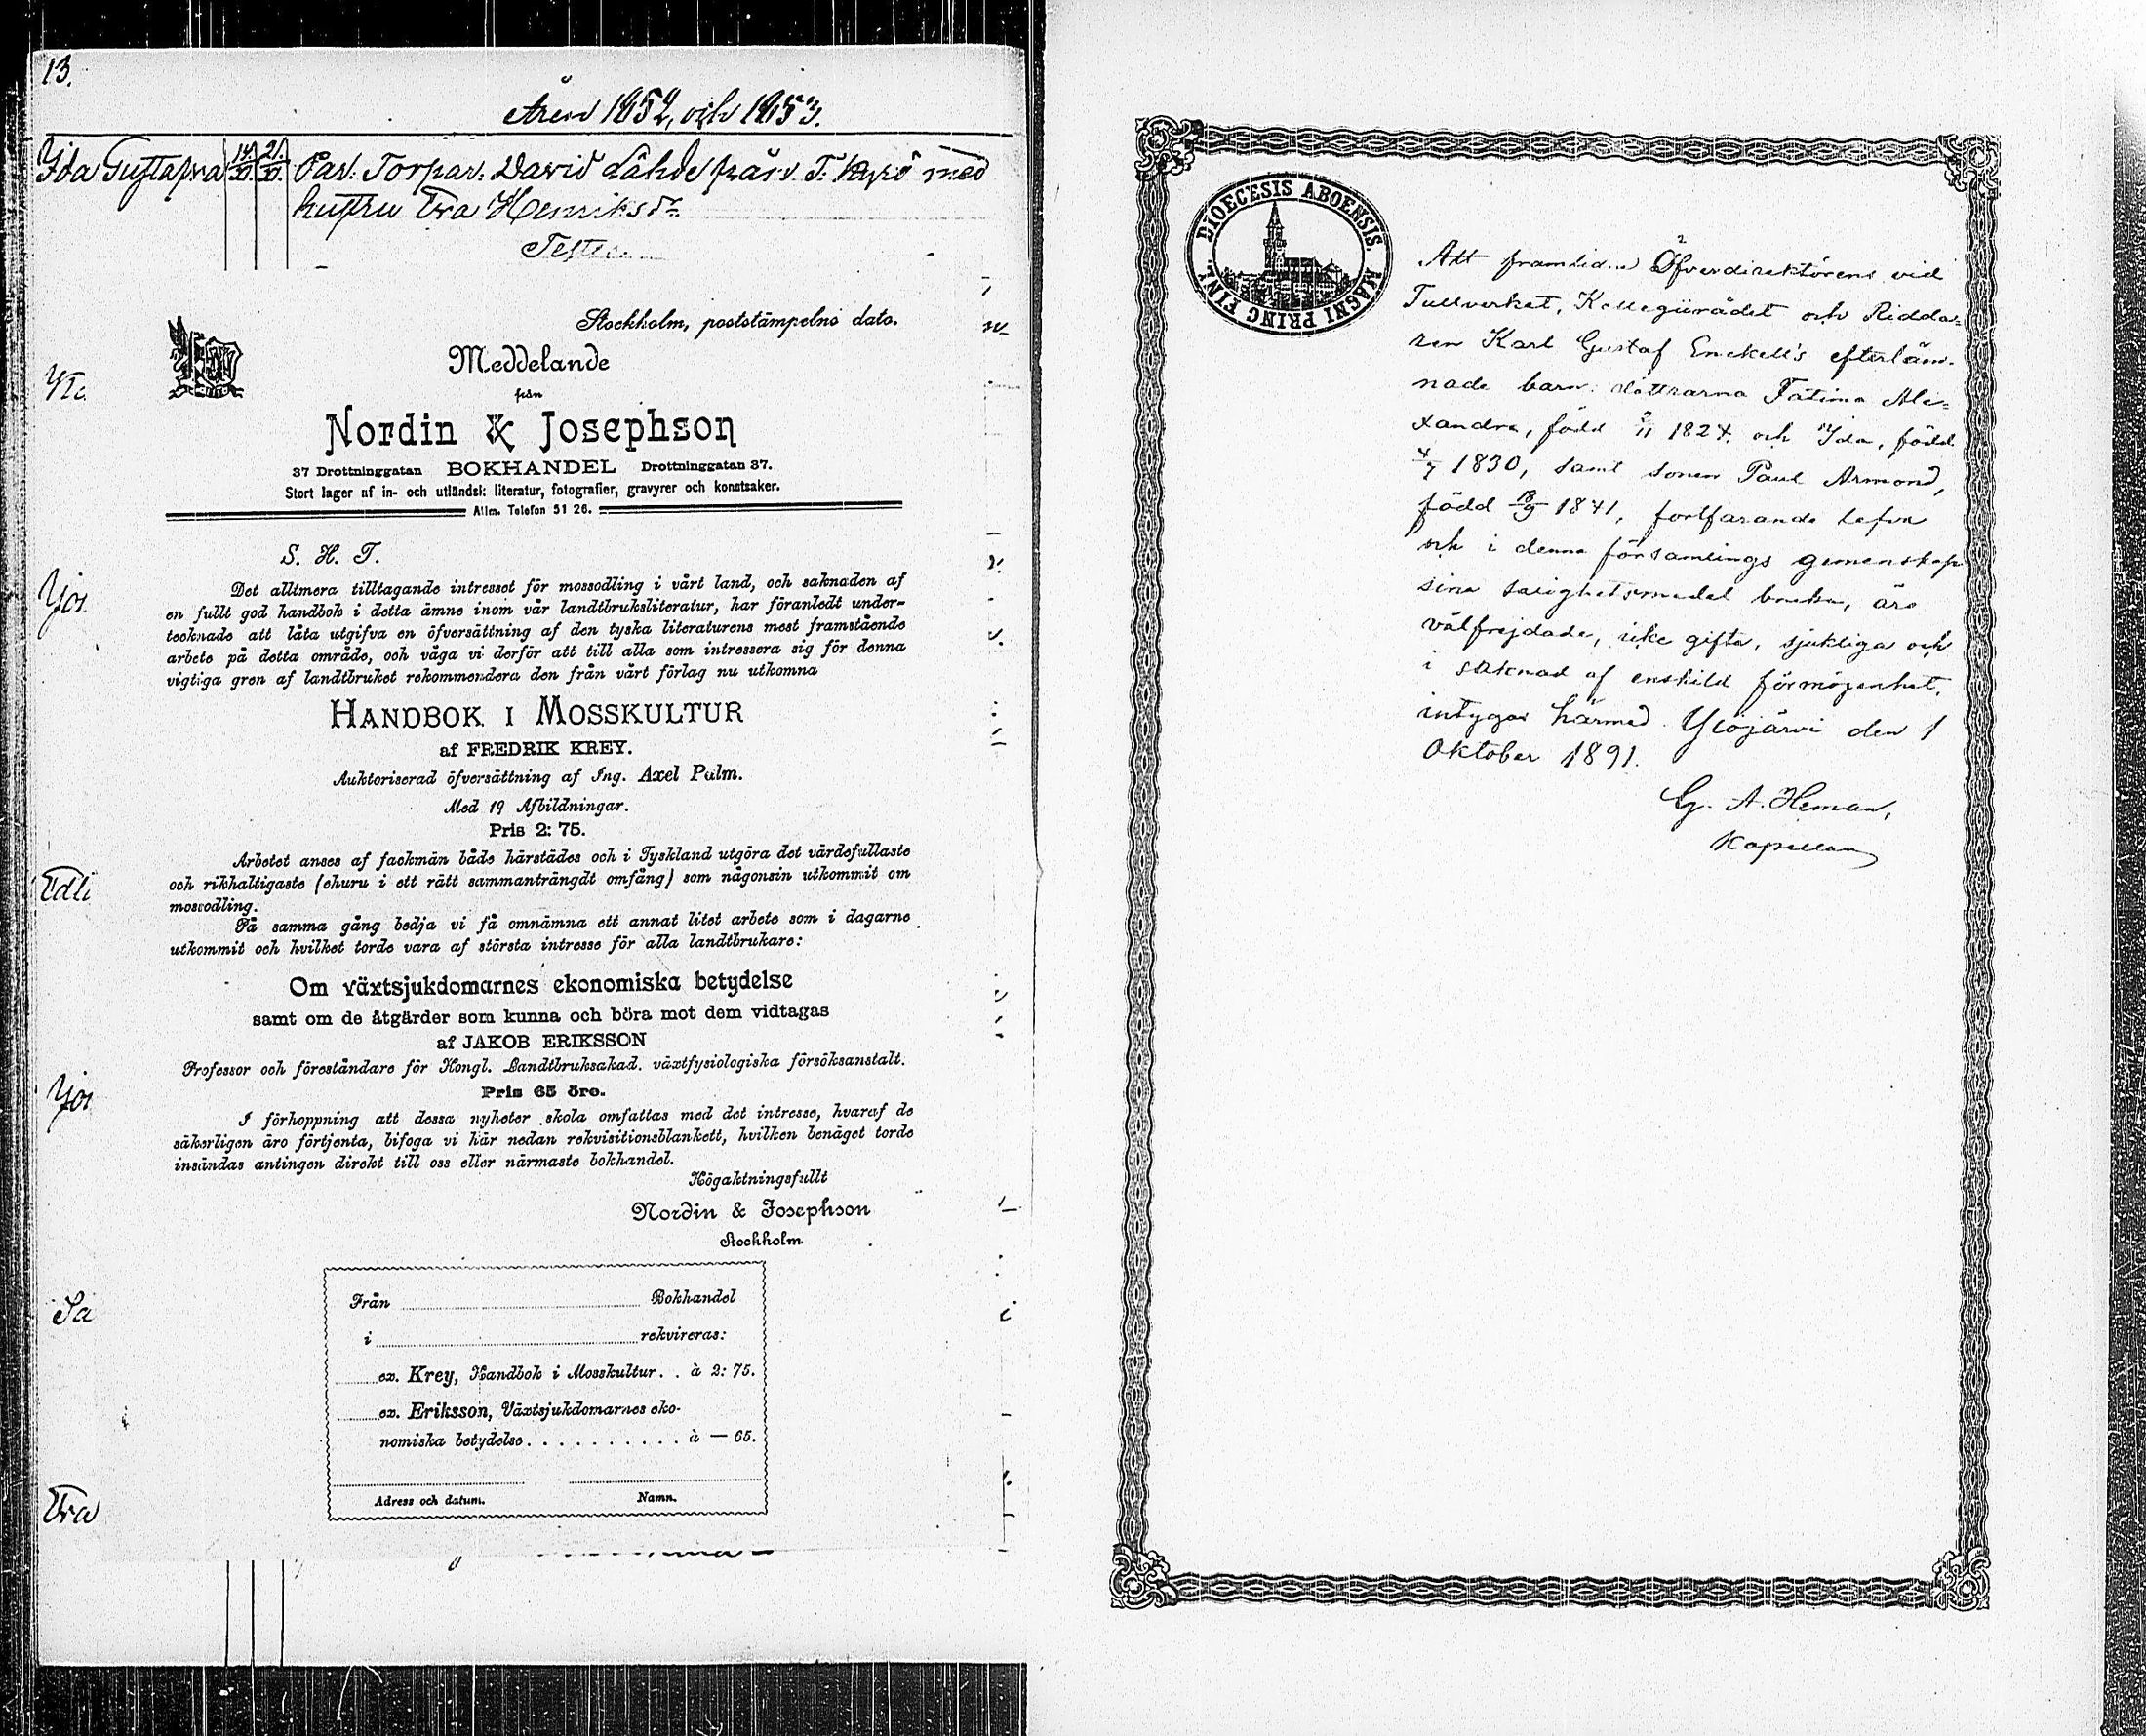 13.
Åren 1852, och 1853.
Ida Gustafva 14/30 21/30 Par. Torpar. David Lähde från T. Kyrö med
hustru Eva Henriksdr
Stockholm, poststämpelns dato.
Meddelande
från
Nordin & Josephson
37 Drottninggatan BOKHANDEL Drottninggatan 37.
Stort lager af in- och utländsk literatur, fotografier, gravyrer och konstsaker.
Allm. Telefon 51 26.
S. H. T.
Det alltmera tilltagande intresset för mossodling i vårt land, och saknaden af
en fullt god handbok i detta ämne inom vår landtbruksliteratur, har föranledt under-
tecknade att låta utgifva en öfversättning af den tyska literaturens mest framstående
arbete på detta område, och våga vi derför att till alla som intressera sig för denna
vigtiga gren af landtbruket rekommendera den från vårt förlag nu utkomna
HANDBOK I MOSSKULTUR
af FREDRIK KREY.
Auktoriserad öfversättning af Ing. Axel Palm.
Med 19 Afbildningar.
Pris 2: 75.
Arbetet anses af fackmän både härstädes och i Tyskland utgöra det värdefullaste
och rikhaltigaste (ehuru i ett rätt sammanträngdt omfång) som någonsin utkommit om
mossodling.
På samma gång bedja vi få omnämna ett annat litet arbete som i dagarne
utkommit och hvilket torde vara af största intresse för alla landtbrukare:
Om växtsjukdomarnes ekonomiska betydelse
samt om de åtgärder som kunna och böra mot dem vidtagas
af JAKOB ERIKSSON
Professor och föreståndare för Kongl. Landtbruksakad. växtfysiologiska försöksanstalt.
Pris 65 öre.
I förhoppning att dessa nyheter skola omfattas med det intresse, hvaraf de
säkerligen äro förtjenta, bifoga vi här nedan rekvisitionsblankett, hvilken benäget torde
insändas antingen direkt till oss eller närmaste bokhandel.
Högaktningsfullt
Nordin & Josephson
Stockholm
Från Bokhandel
i rekvireras:
ex. Krey, Handbok i Mosskultur. . à 2: 75.
ex. Eriksson, Växtsjukdomarnes eko-
nomiska betydelse. . . . . . . . . . à — 65.
Adress och datum. Namn.
Edli
Sa
Eva
DIOECESIS ABOENSIS. MAGNI PRINC FINL.
Att framlidne Öfverdirektörens vid
Tullverket, Kollegiirådet och Ridda=
ren Karl Gustaf Enckell's efterläm-
nade barn: döttrarna Fatima Ale=
xandra, född 2/11 1827. och Ida, född
4/7 1830, samt sonen Paul Armond,
född 18/9 1841, fortfarande lefva
och i denna församlings gemenskap
sina salighetsmedel bruka, äro
välfrejdade, icke gifta, sjukliga och
i saknad af enskild förmögenhet,
intygas härmed. Ylöjärvi den 1
Oktober 1891.
G. A. Heman,
Kapellan